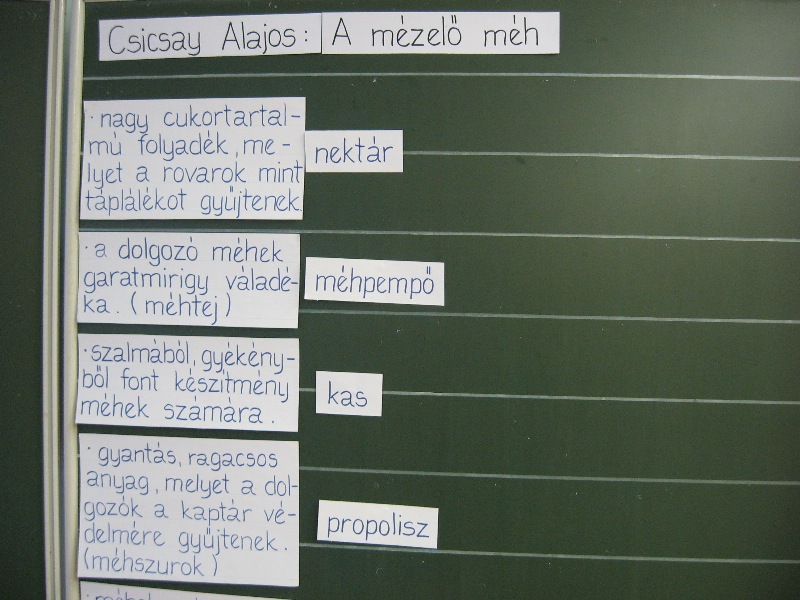 Csicsay Alajos: A mézelő méh
· nagy cukortartal-
mú folyadék, me-
lyet a rovarok mint
táplálékot gyűjtenek.
nektár
· a dolgozó méhek
garatmirigy váladé-
ka. (méhtej)
méhpempő
· szalmából, gyékény-
ből font készítmény
méhek számára.
kas
· gyantás, ragacsos
anyag, melyet a dol-
gozók a kaptár vé-
delmére gyűjtenek.
(méhszurok)
propolisz